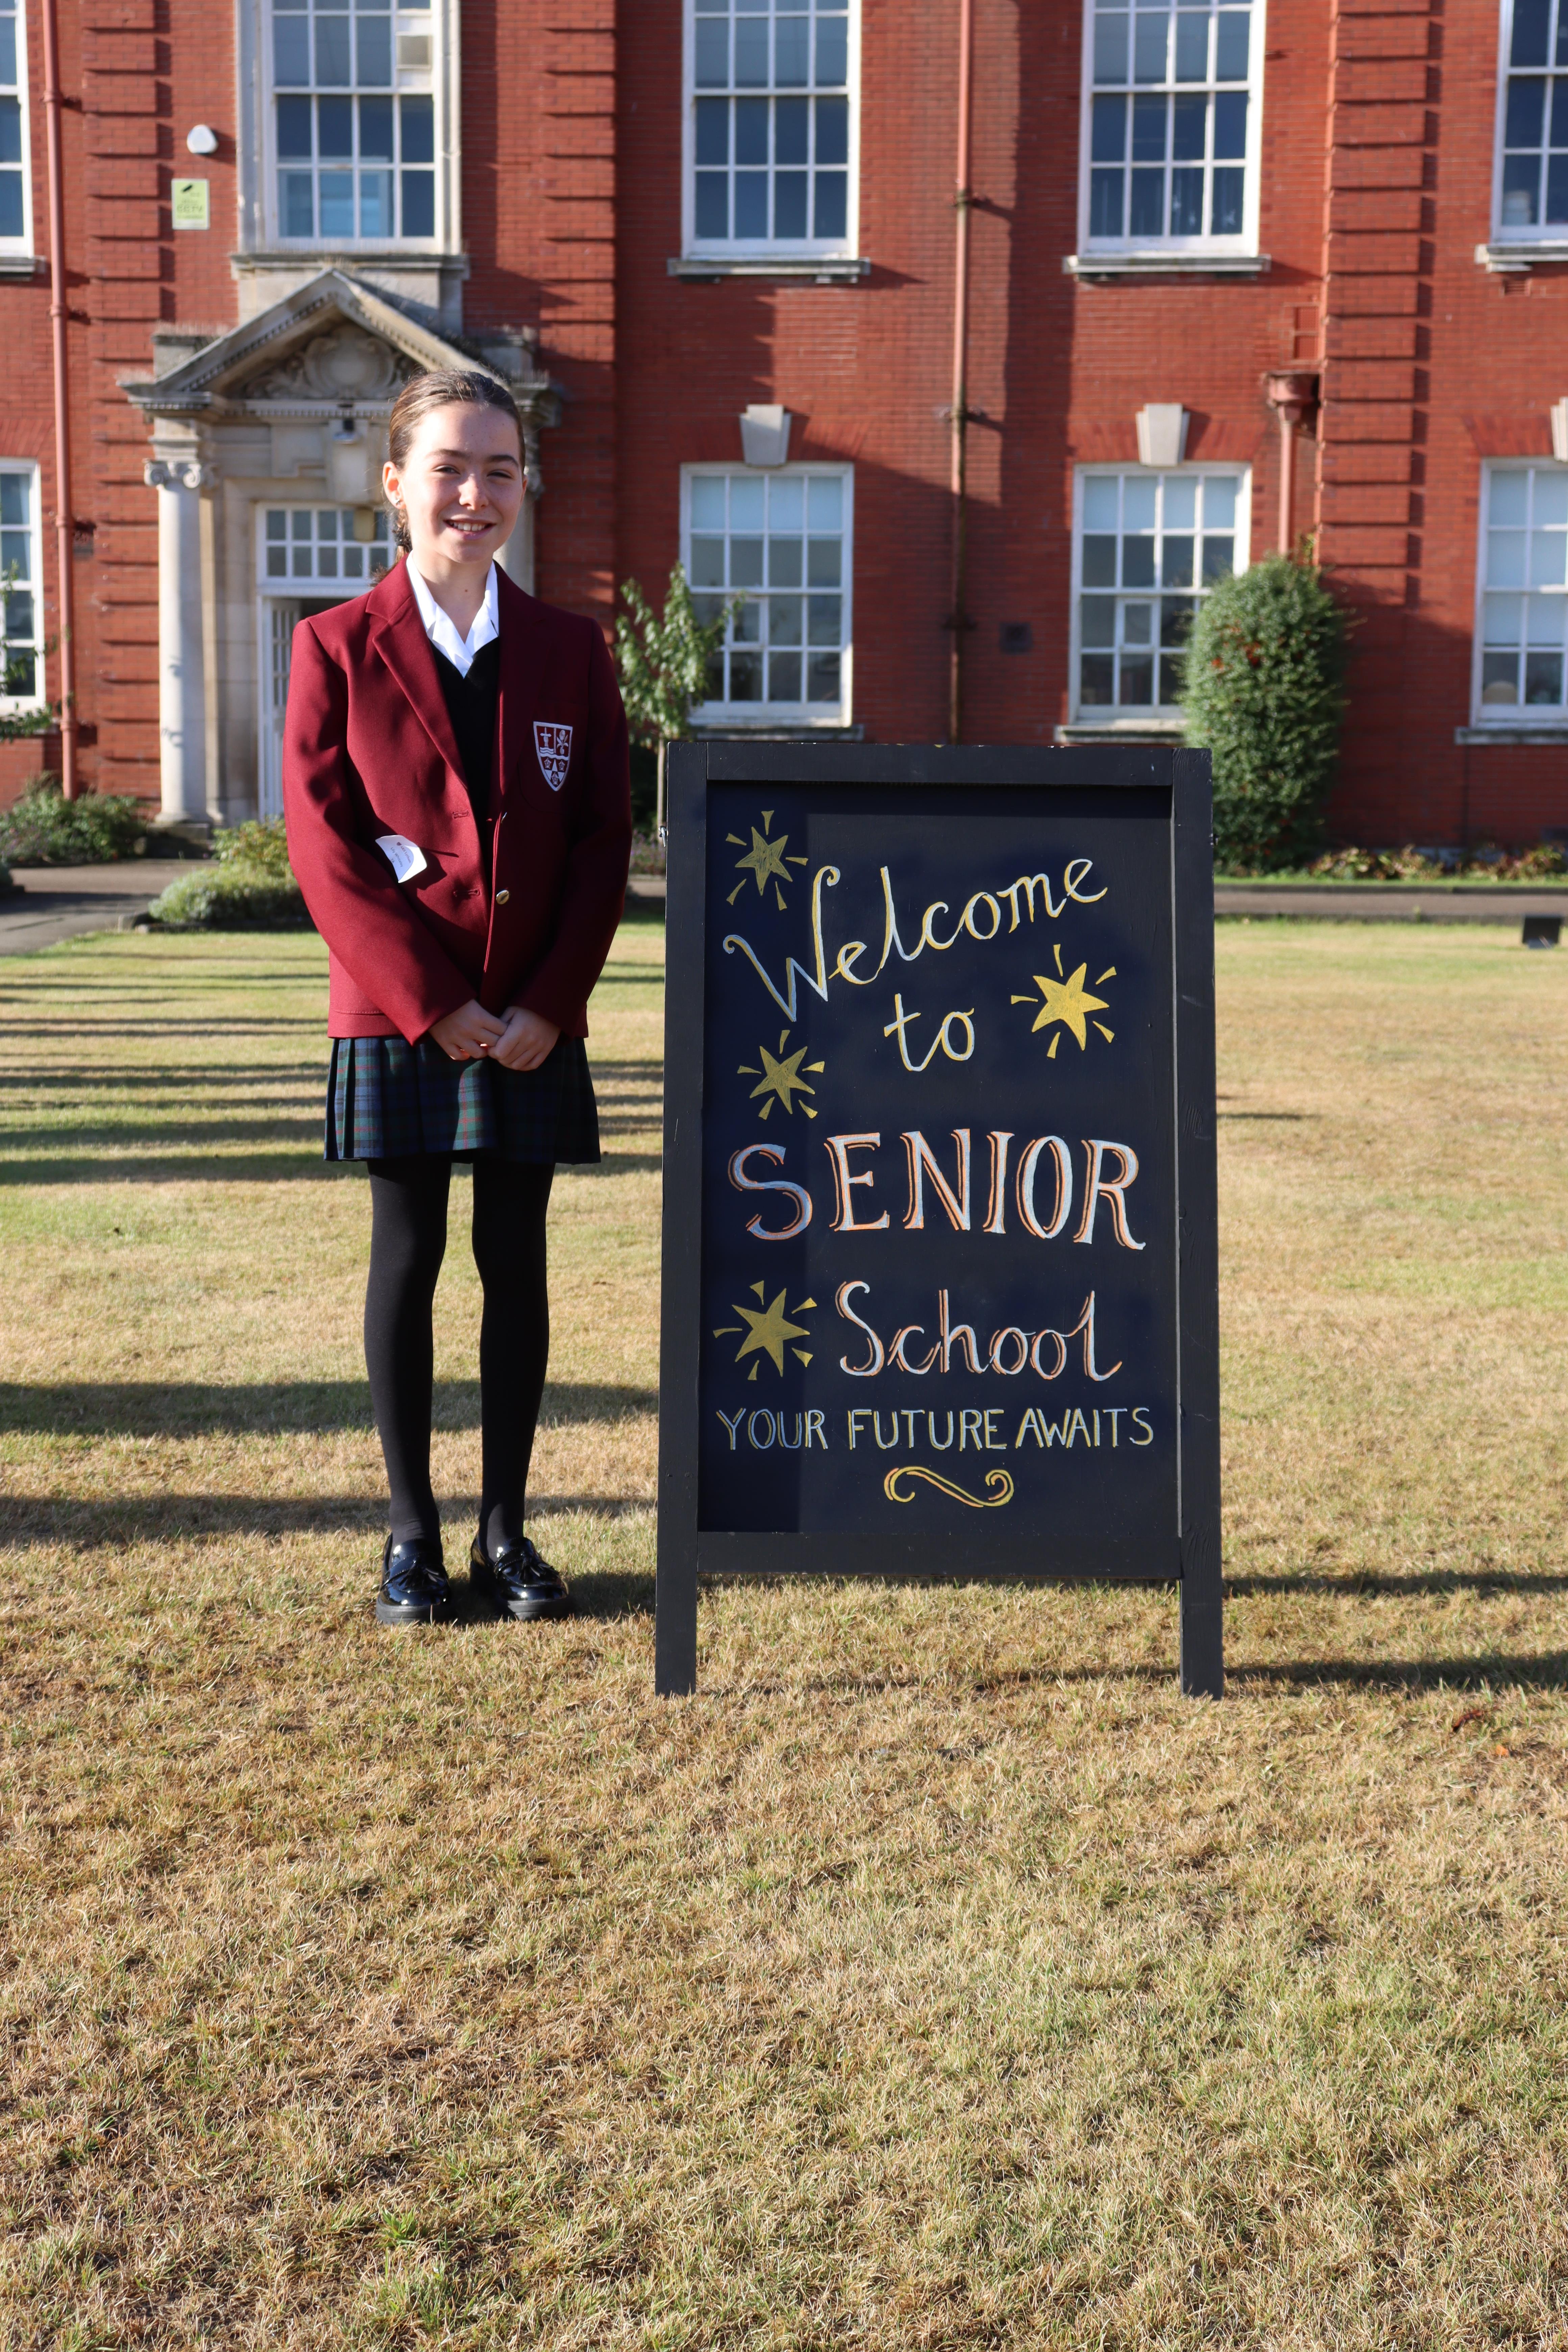 Welcome
to
SENIOR
School
YOUR FUTURE AWAITS
CCTV